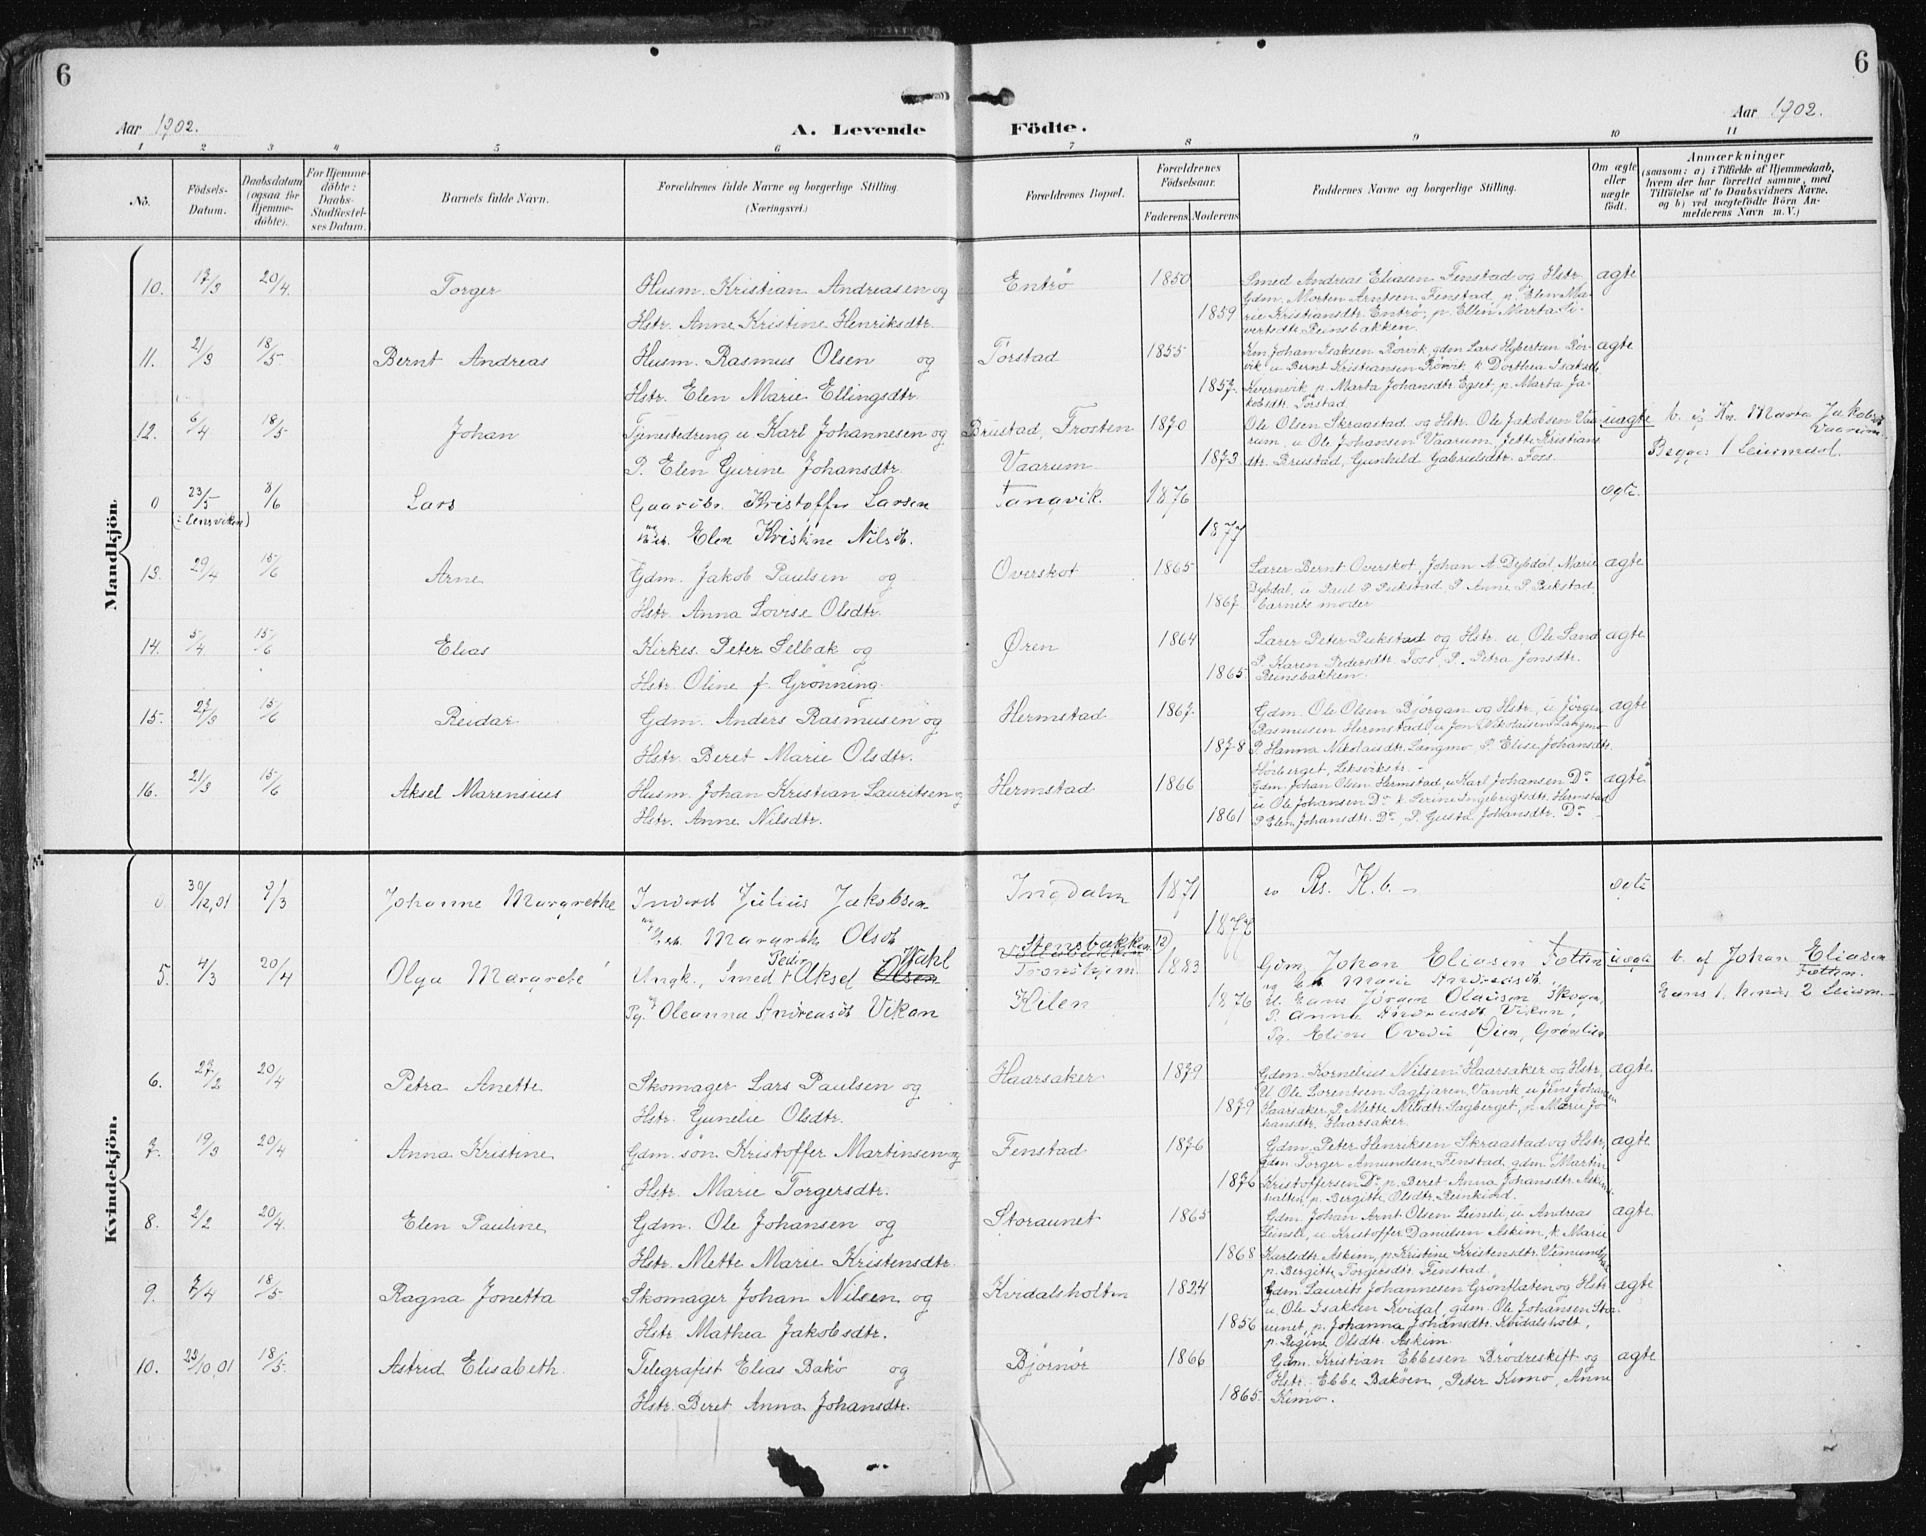 6
6
Aar 1902.
A. Levende Födte.
Aar 1902.
1 2 3 4 5 6 7 8 9 10 11
No.
Födsels-Datum.
Daabsdatum (ogsaa for Hjemme-döbte).
For Hjemme-döbte: Daabs-Stadfæstel-ses Datum.
Barnets fulde Navn.
Forældrenes fulde Navne og borgerlige Stilling.
(Næringsvei.)
Forældrenes Bopæl.
Forældrenes Födselsaar.
Faderens Moderens
Faddernes Navne og borgerlige Stilling.
Om ægte eller uægte födt.
Anmærkninger
(saasom: a) i Tilfælde af Hjemmedaab, hvem der har forrettet samme, med Tilföielse af to Daabsvidners Navne, og b) ved uægtefödte Börn An-melderens Navn m. V.)
Mandkjön.
10. 17/3 20/4 Torger Husm. Kristian Andreasen og Entrø 1850 Smed Andreas Eliasen Fenstad og Hstr. ægte
Gdm. Morten Arntsen Fenstad, p. Elen Ma-
Hstr. Anne Kristine Henriksdtr. 1859 rie Kristiansdtr. Entrø, p. Ellen Marta Si-
vertsdtr. Reinsbakken.
11. 21/3 18/5 Bernt Andreas Husm. Rasmus Olsen og Torstad 1855 Km. Johan Isaksen Rørvik, gdm Lars Hybertsen Rør- ægte
vik u Bernt Kristiansen Rørvik k Dorthea Isaksdtr.
Hstr. Elen Marie Ellingsdtr. 1857. Kvernvik p. Marta Johansdtr. Egset, p. Marta Ja-
kobsdtr. Torstad
12. 6/4 18/5 Johan Tjenestedreng u Karl Johannesen og Brustad, Frosten 1870 Ole Olsen Skraastad og Hstr. Ole Jakobsen Vaa- uægte b. af Kv. Marta Jakobsdt
rum, u Ole Johansen Vaarum, Jette Kristians Vaarum.
P. Elen Gurine Johansdtr. Vaarum 1873 dtr. Brustad, Gunhild Gabrielsdtr. Foss. Begges 1 Leiermaal.
0 23/5 8/6 Lars Gaardbr. Kristoffer Larsen Tangvik. 1876 ægte.
(i Lensviken)
og Elen Kristine Nilsdt. 1877
13. 29/4 15/6 Arne Gdm. Jakob Paulsen og Overskot 1865 Lærer Bernt Overskot, Johan A. Dybdal, Marie ægte
Dybdal, u Paul P. Pukstad, P. Anne P. Pukstad,
Hstr. Anna Lovise Olsdtr. 1867. barnets moder
14. 5/4 15/6 Elias Kirkes. Peter Selbak og Øren 1864 Lærer Peter Pukstad og Hstr. u, Ole Sand ægte
P. Karen Pedersdtr. Foss, P. Petra Jonsdtr.
Hstr. Oline f. Grønning. 1865 Reinsbakken.
15. 27/3 15/6 Reidar Gdm. Anders Rasmusen og Hermstad 1867. Gdm. Ole Olsen Bjørgan og Hstr., u Jørgen ægte
Rasmusen Hermstad, u Jon Nikolaisen Langmo
Hstr. Beret Marie Olsdtr. 1878 P. Hanna Nikolaisdtr. Langmo, P. Elise Johansdtr.
Høiberget, Leksvikstr. -
16. 21/3 15/6 Aksel Marensius Husm. Johan Kristian Lauritsen og Hermstad 1866 Gdm. Johan Olsen Hermstad, u Karl Johansen Do ægte
u Ole Johansen Do k Serine Ingebrigtsdtr. Hermstad
Hstr. Anne Nilsdtr. 1861 P. Elen Johansdtr. Do, P. Gusta Johansdtr. Do
Kvindekjön.
0 30/12,01 9/3 Johanne Margrethe Inderst Julius Jakobsen Ingdalen 1871 se Rs. K.b. - ægte
og Margrethe Olsdt 1877
5. 4/3 20/4 Olga Margrethe Ungk., Smed Peder Aksel Olsen Wahl Stensbakken 12) Trondhjem 1883 Gdm. Johan Eliasen Fætten uægte b. af Johan Eliasen
og Marie Andreasdt. Fætten.
Pg. Oleanna Andreasdt Vikan Kilen 1876 U. Hans Jørgen Olausen Skogen, Hans 1, hendes 2 Leierm.
P. Anna Andreasdt Vikan,
Pg. Eline Ovedie Øien, Grønlien
6. 27/2 20/4 Petra Anette Skomager Lars Paulsen og Haarsaker 1879 Gdm. Kornelius Nilsen Haarsaker og Hstr. ægte.
U Ole Lorentsen Sagfjæren, Vanvik, u Jens Johansen
Hstr. Gunelie Olsdtr. 1879 Haarsaker P. Mette Nilsdtr. Sagberget, p. Marie Jo-
hansdtr. Haarsaker.
7. 19/3 20/4 Anna Kristine Gdm. søn Kristoffer Martinsen og Fenstad 1876 Gdm. Peter Henriksen Skraastad og Hstr. ægte
Gdm. Torger Amundsen, Fenstad, gdm Martin
Hstr. Marie Torgersdtr. 1876 Kristoffersen Do, p. Beret Anna Johansdtr. Askim-
halten, p. Bergitte Olsdtr. Reinkind.
8. 2/2 20/4. Elen Pauline Gdm. Ole Johansen og Storaunet 1865 Gdm. Johan Arnt Olsen Leinsli, u Andreas ægte
Leinsli, u Kristoffer Danielsen Askim, k. Marie
Hstr. Mette Marie Kristensdtr. 1868 Karlsdtr Askim, p. Kristine Kristensdtr. Veimund
p. Bergitte Torgersdtr. Fenstad
9. 7/4 18/5 Ragna Jonetta Skomager Johan Nilsen og Kvidalsholten 1824 Gdm. Laurits Johannesen Grønflaten og Hstr ægte
u Ole Isaksen Kvidal, gdm. Ole Johansen Sto-
Hstr. Mathea Jakobsdtr. 1856 raunet, p. Johanna Johansdtr. Kvidalsholt,
p. Regine Olsdtr. Askim.
10. 23/10,01 18/5 Astrid Elisabeth. Telegrafist Elias Bakø og Bjørnør 1866 Gdm. Kristian Ebbesen Brødreskift og ægte
Hstr. Ebbe Bakøen, Peter Kimo, Anne
Hstr. Beret Anna Johansdtr. 1865. Kimo.